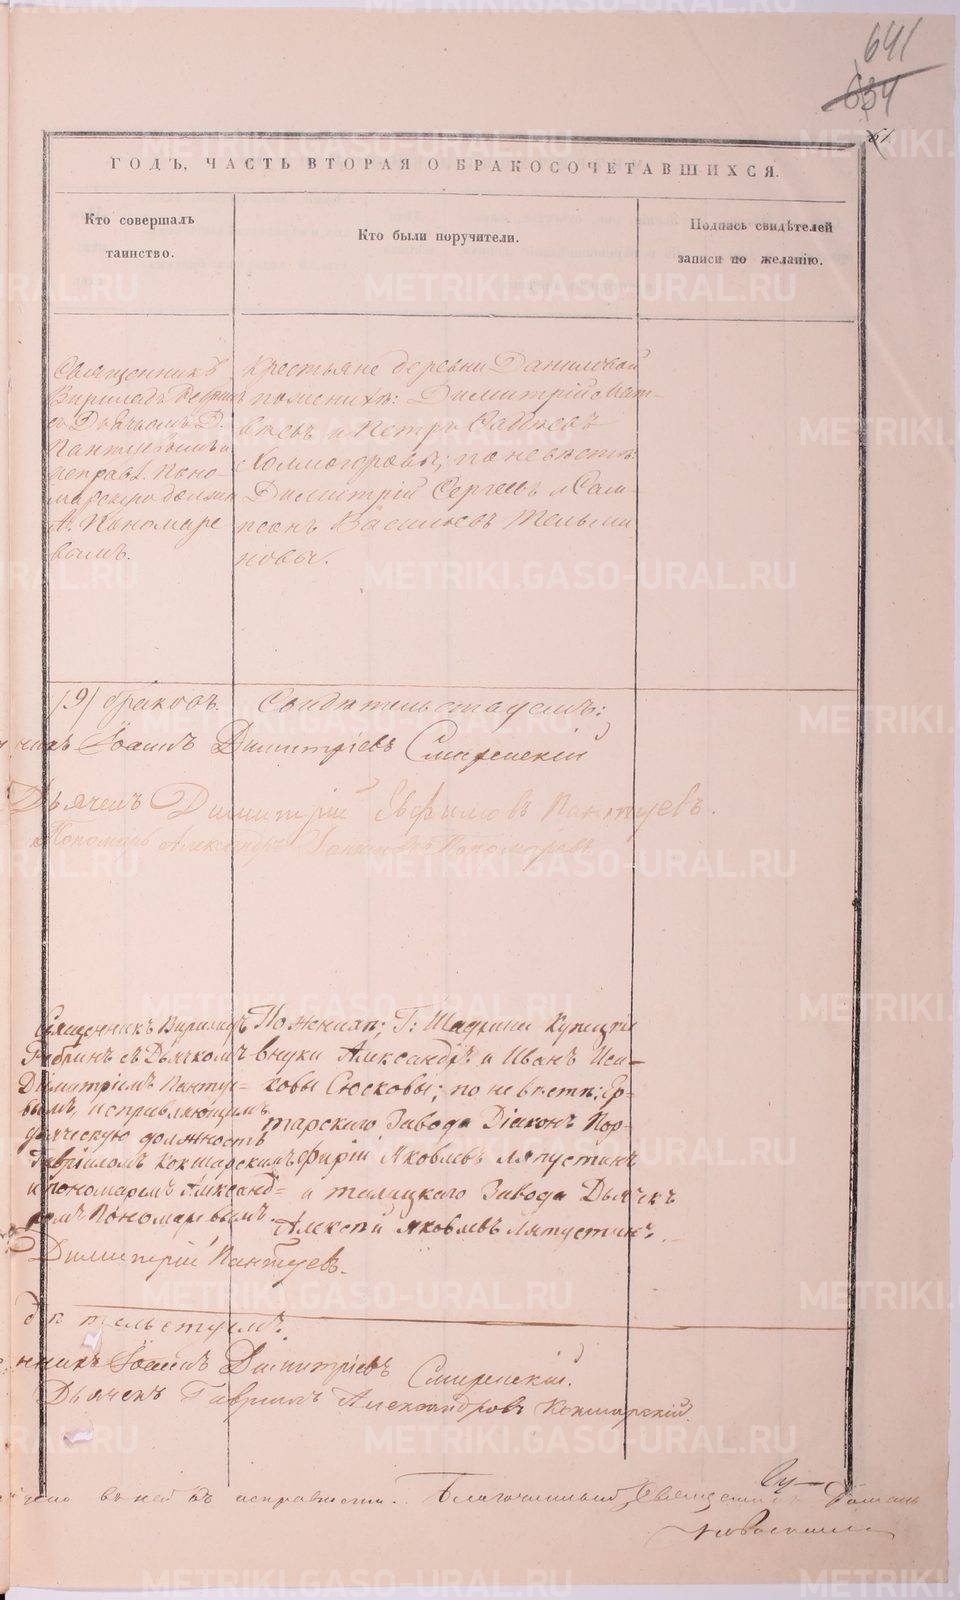 641
634
61
ГОДЪ, ЧАСТЬ ВТОРАЯ О БРАКОСОЧЕТАВШИХСЯ.
Кто совершалъ
таинство.
Кто были поручители.
Подпись свидѣтелей
записи по желанію.
Священникъ
съ Дьячкомъ Д.
Пантуевымъ и
исправл. Поно-
марскую должн
А. Пономаре
вымъ.
Крестьяне деревни Даниловой
по женихѣ: Димитрій Мат-
вѣевъ и Петръ Саввевъ
Холмогоровы; по невѣстѣ:
Димитрій Сергеевъ и Сам-
псонъ Васильевъ Тельми
новы.
(9) браковъ. Свидѣтельствуемъ:
Іоаннъ Димитріевъ Смиренскій
Дьячекъ Димитрій Евфимовъ Пантуевъ.
Пономарь Александръ Пономаревъ
Священникъ
съ Дьячкомъ
Димитріемъ Пантуе-
вымъ, исправляющимъ
дьяческую должность
Гавріиломъ Кокшарскимъ
и пономаремъ Александ-
ромъ Пономаревымъ.
По женихѣ; Г: Шадрина Купецкіе
внуки Александръ и Иванъ Иса-
ковы Сюсковы; по невѣстѣ: Ер-
тарскаго Завода Діаконъ Пор-
фирій Яковлевъ Ляпустинъ
и талицкаго Завода Дьячекъ
Алексѣй Яковлевъ Ляпустинъ.
Димитрій Пантуевъ.
дѣтельствуемъ:
нникъ Іоаннъ Димитріевъ Смиренскій.
Дьячекъ Гавріилъ Александровъ Кокшарскій
въ ней въ исправности. Благочинный Священникъ